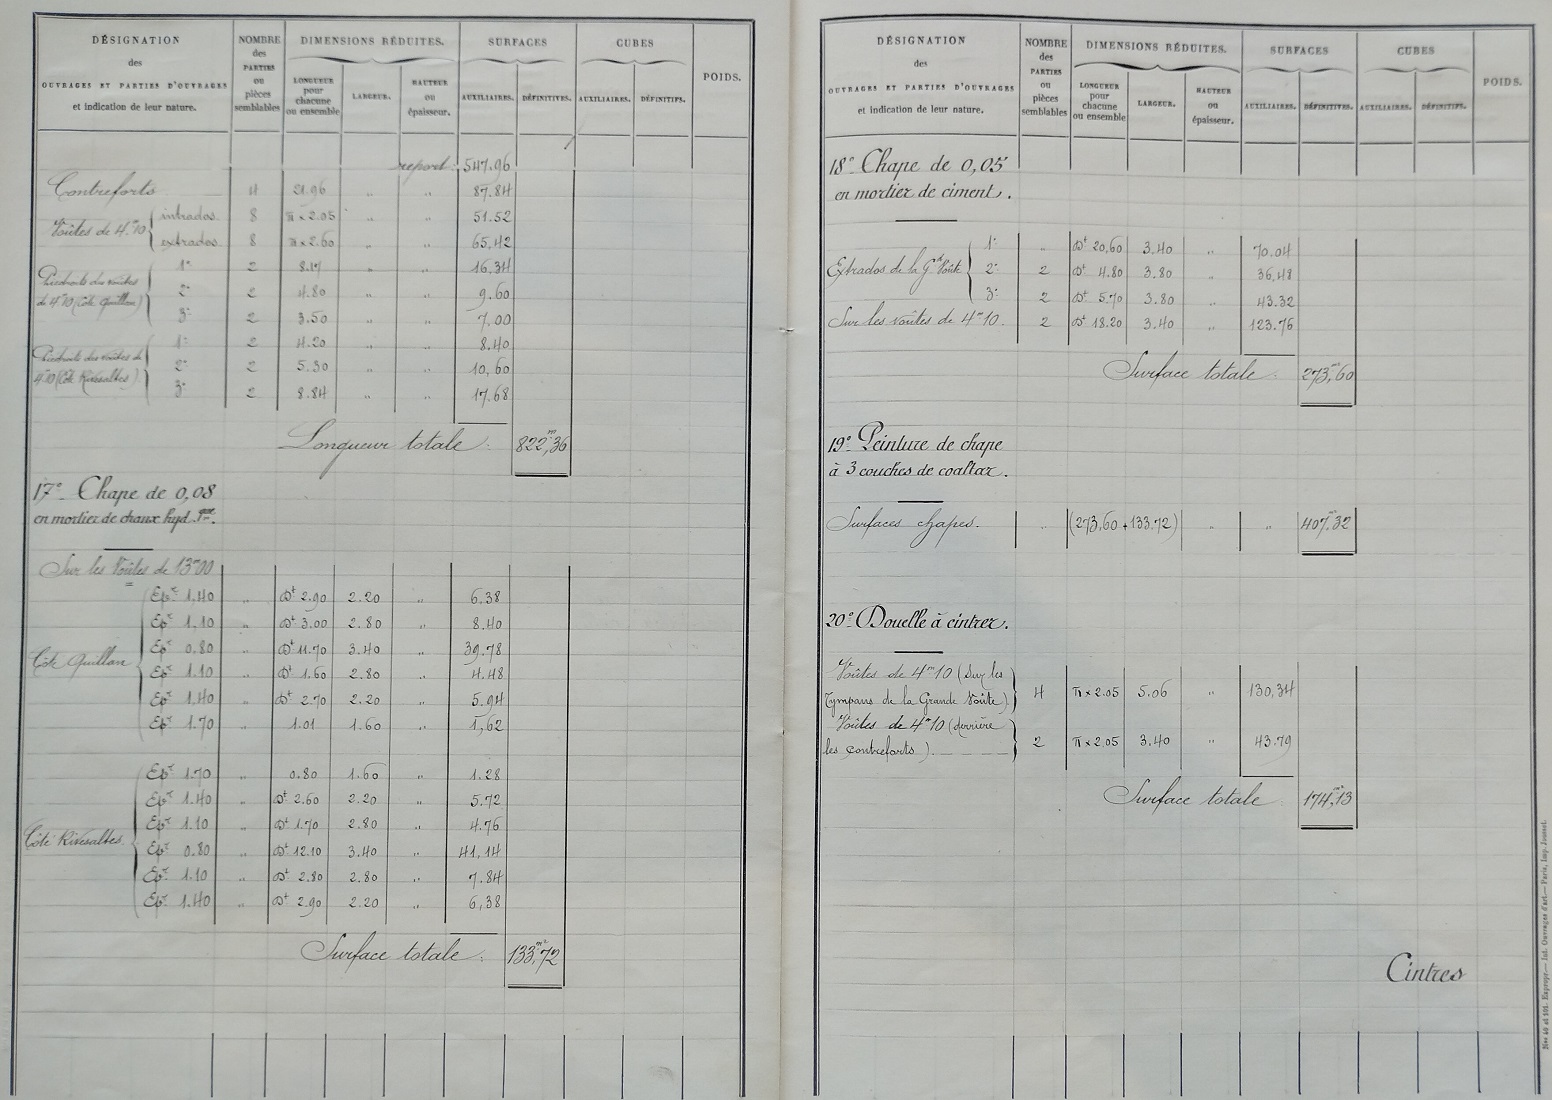 DÉSIGNATION
des
OUVRAGES ET PARTIES D'OUVRAGES
et indication de leur nature.
NOMBRE
des
PARTIES
ou
pièces
semblables
DIMENSIONS RÉDUITES.
LONGUEUR
pour
chacune
ou ensemble
LARGEUR.
HAUTEUR
ou
épaisseur.
SURFACES
AUXILIAIRES. DÉFINITIVES.
CUBES
AUXILIAIRES. DÉFINITIFS.
POIDS.
report: 547.96
Contreforts 4 21.96 " " 87.84
Voûtes de 4.m10 { intrados 8 π × 2.05 " " 51.52
extrados 8 π × 2.60 " " 65,42
Piédroits des voûtes
de 4m10 (Côté Quillan)
1° 2 8.17 " " 16.34
2° 2 4.80 " " 9.60
3° 2 3.50 " " 7.00
Piédroits des voûtes de
4m10 (Côté Rivesaltes)
1° 2 4.20 " " 8.40
2° 2 5.30 " " 10,60
3° 2 8.84 " " 17.68
Longueur totale : 822m,36
17°_ Chape de 0,08
en mortier de chaux hyd.que.
Sur les Voûtes de 13m00
Côté Quillan
Epr 1.40 " Dt 2.90 2.20 " 6.38
Epr 1,10 " Dt 3.00 2.80 " 8.40
Epr 0.80 " Dt 11.70 3.40 " 39.78
Epr 1.10 " Dt 1.60 2.80 " 4.48
Epr 1.40 " Dt 2.70 2.20 " 5.94
Epr 1.70 " 1.01 1.60 " 1,62
Côté Rivesaltes
Epr 1.70 " 0.80 1.60 " 1.28
Epr 1.40 " Dt 2.60 2.20 " 5.72
Epr 1.10 " Dt 1.70 2.80 " 4.76
Epr 0.80 " Dt 12.10 3.40 " 41,14
Epr 1.10 " Dt 2.80 2.80 " 7.84
Epr 1.40 " Dt 2.90 2.20 " 6,38
Surface totale : 133m²,72
DÉSIGNATION
des
OUVRAGES ET PARTIES D'OUVRAGES
et indication de leur nature.
NOMBRE
des
PARTIES
ou
pièces
semblables
DIMENSIONS RÉDUITES.
LONGUEUR
pour
chacune
ou ensemble
LARGEUR.
HAUTEUR
ou
épaisseur.
SURFACES
AUXILIAIRES. DÉFINITIVES.
CUBES
AUXILIAIRES. DÉFINITIFS.
POIDS.
18° Chape de 0,05
en mortier de ciment.
Extrados de la Gde Voûte
1° " Dt 20,60 3.40 " 70.04
2° 2 Dt 4.80 3.80 " 36,48
3° 2 Dt 5.70 3.80 " 43.32
Sur les voûtes de 4m10. 2 Dt 18.20 3.40 " 123.76
Surface totale : 273m²,60
19°_ Peinture de chape
à 3 couches de coaltar.
Surfaces chapes. " (273,60 + 133.72) " " 407m²,32
20°_ Douelle à cintrer.
Voûtes de 4m10 (sur les
Tympans de la Grande Voûte) 4 π × 2.05 5.06 " 130,34
Voûtes de 4m10 (derrière
les contreforts) 2 π × 2.05 3.40 " 43.79
Surface totale 174m²,13
Cintres
Nos 40 et 101. Expropr.— Ind. Ouvrages d'art.— Paris, Imp. Jousset.